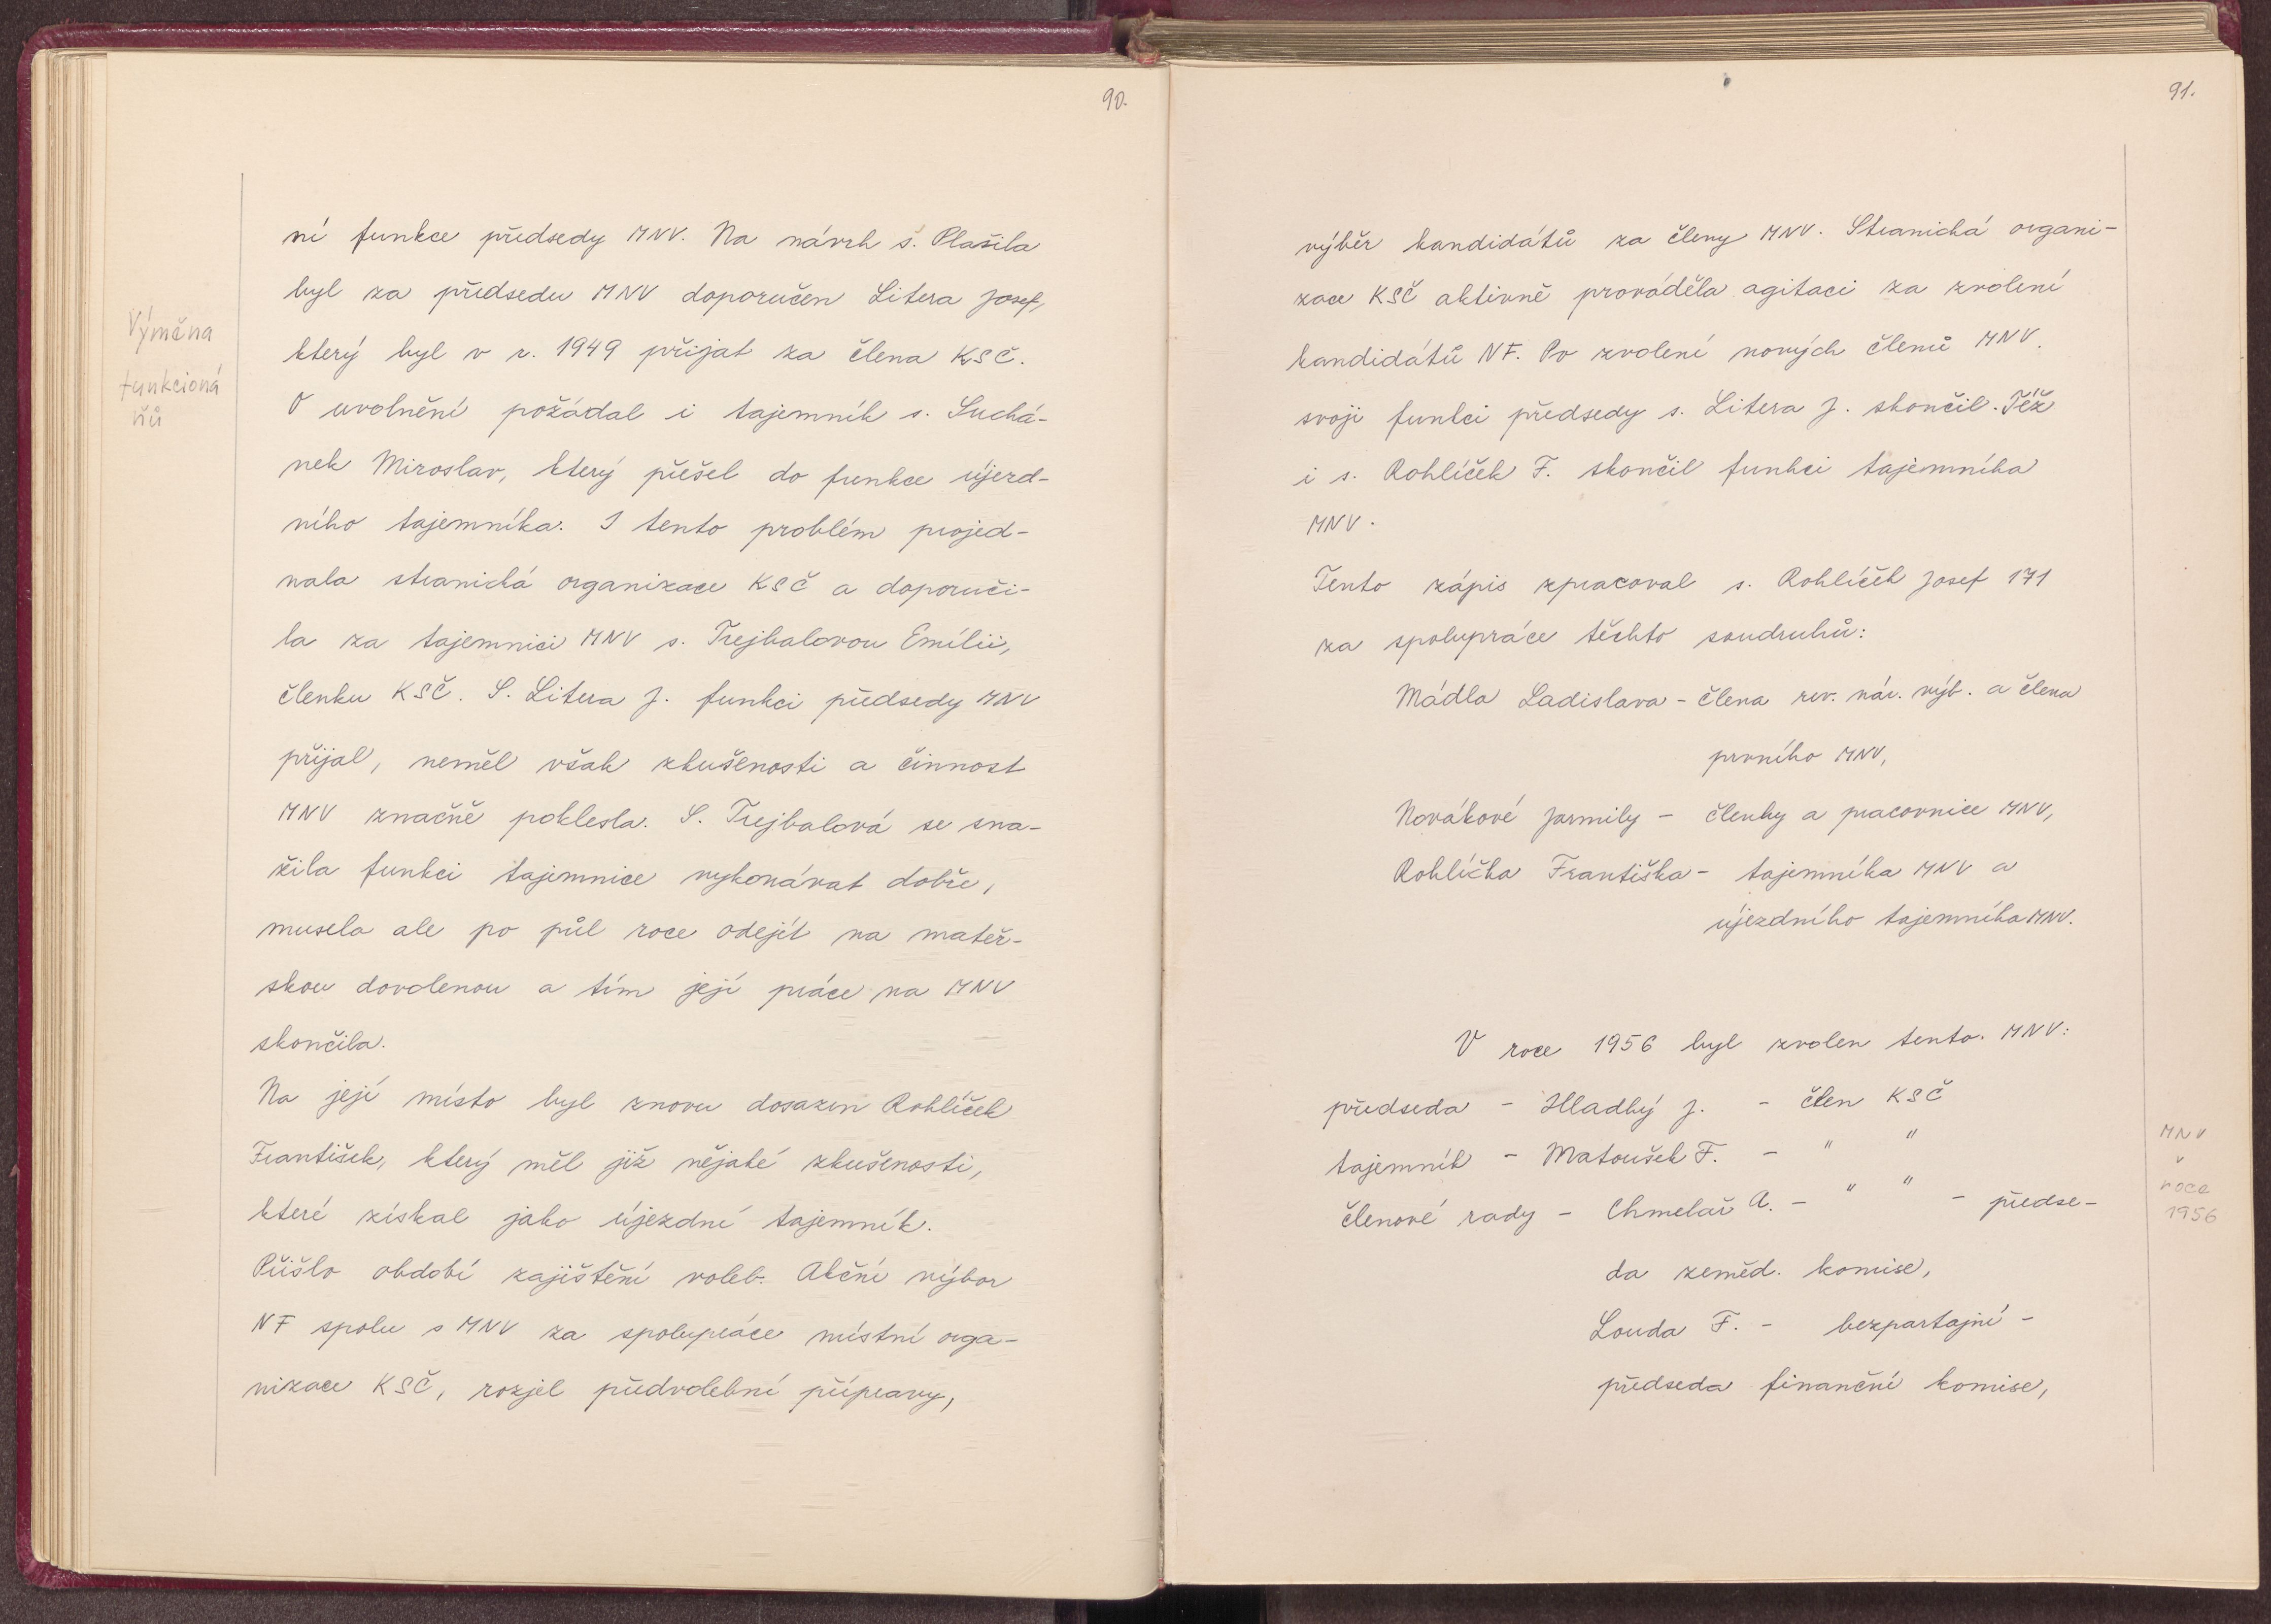 90.
ní funkce předsedy MNV. Na návrh s. Plašila
byl za předsedu MNV doporučen Litera Josef,
který byl v r. 1949 přijat za člena KSČ.
O uvolnění požádal i tajemník s. Suchá-
nek Miroslav, který přešel do funkce újezd-
ního tajemníka. I tento problém projed-
nala stranická organizace KSČ a doporuči-
la za tajemnici MNV s. Trejbalovou Emílii,
členku KSČ. S. Litera J. funkci předsedy MNV
přijal, neměl však zkušenosti a činnost
MNV značně poklesla. S. Trejbalová se sna-
žila funkci tajemnice vykonávat dobře,
musela ale po půl roce odejít na mateř-
skou dovolenou a tím její práce na MNV
skončila.
Na její místo byl znovu dosazen Rohlíček
František, který měl již nějaké zkušenosti,
které získal jako újezdní tajemník.
Přišlo období zajištění voleb. Akční výbor
NF spolu s MNV za spolupráce místní orga-
nizace KSČ, rozjel předvolební přípravy,
Výměna
funkcioná
řů
91.
výběr kandidátů za členy MNV. Stranická organi-
zace KSČ aktivně prováděla agitaci za zvolení
kandidátů NF. Po zvolení nových členů MNV.
svoji funkci předsedy s. Litera J. skončil. Též
i s. Rohlíček F. skončil funkci tajemníka
MNV.
Tento zápis zpracoval s. Rohlíček Josef 171
za spolupráce těchto soudruhů:
Mádla Ladislava - člena rev. nár. výb. a člena
prvního MNV,
Novákové Jarmily - členky a pracovnice MNV,
Rohlíčka Františka - tajemníka MNV a
újezdního tajemníka MNV.
V roce 1956 byl zvolen tento. MNV:
předseda - Hladký J. - člen KSČ
tajemník - Matoušek F. - " "
členové rady - Chmelař A. - " " - předse-
da zeměd. komise,
Louda F. - bezpartajní -
předseda finanční komise,
MNV
v
roce
1956